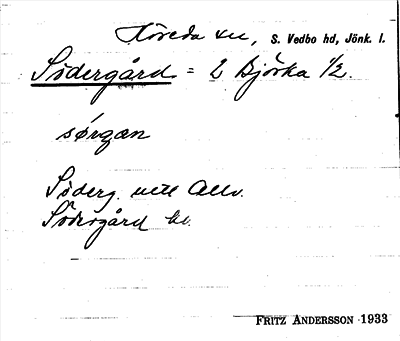 Höreda sn, S. Vedbo hd, Jönk. l.
Södergård = 2 Björka 1/2.
sørgan
Söderg. utt. Allv.
Södergård kv.
FRITZ ANDERSSON 1933